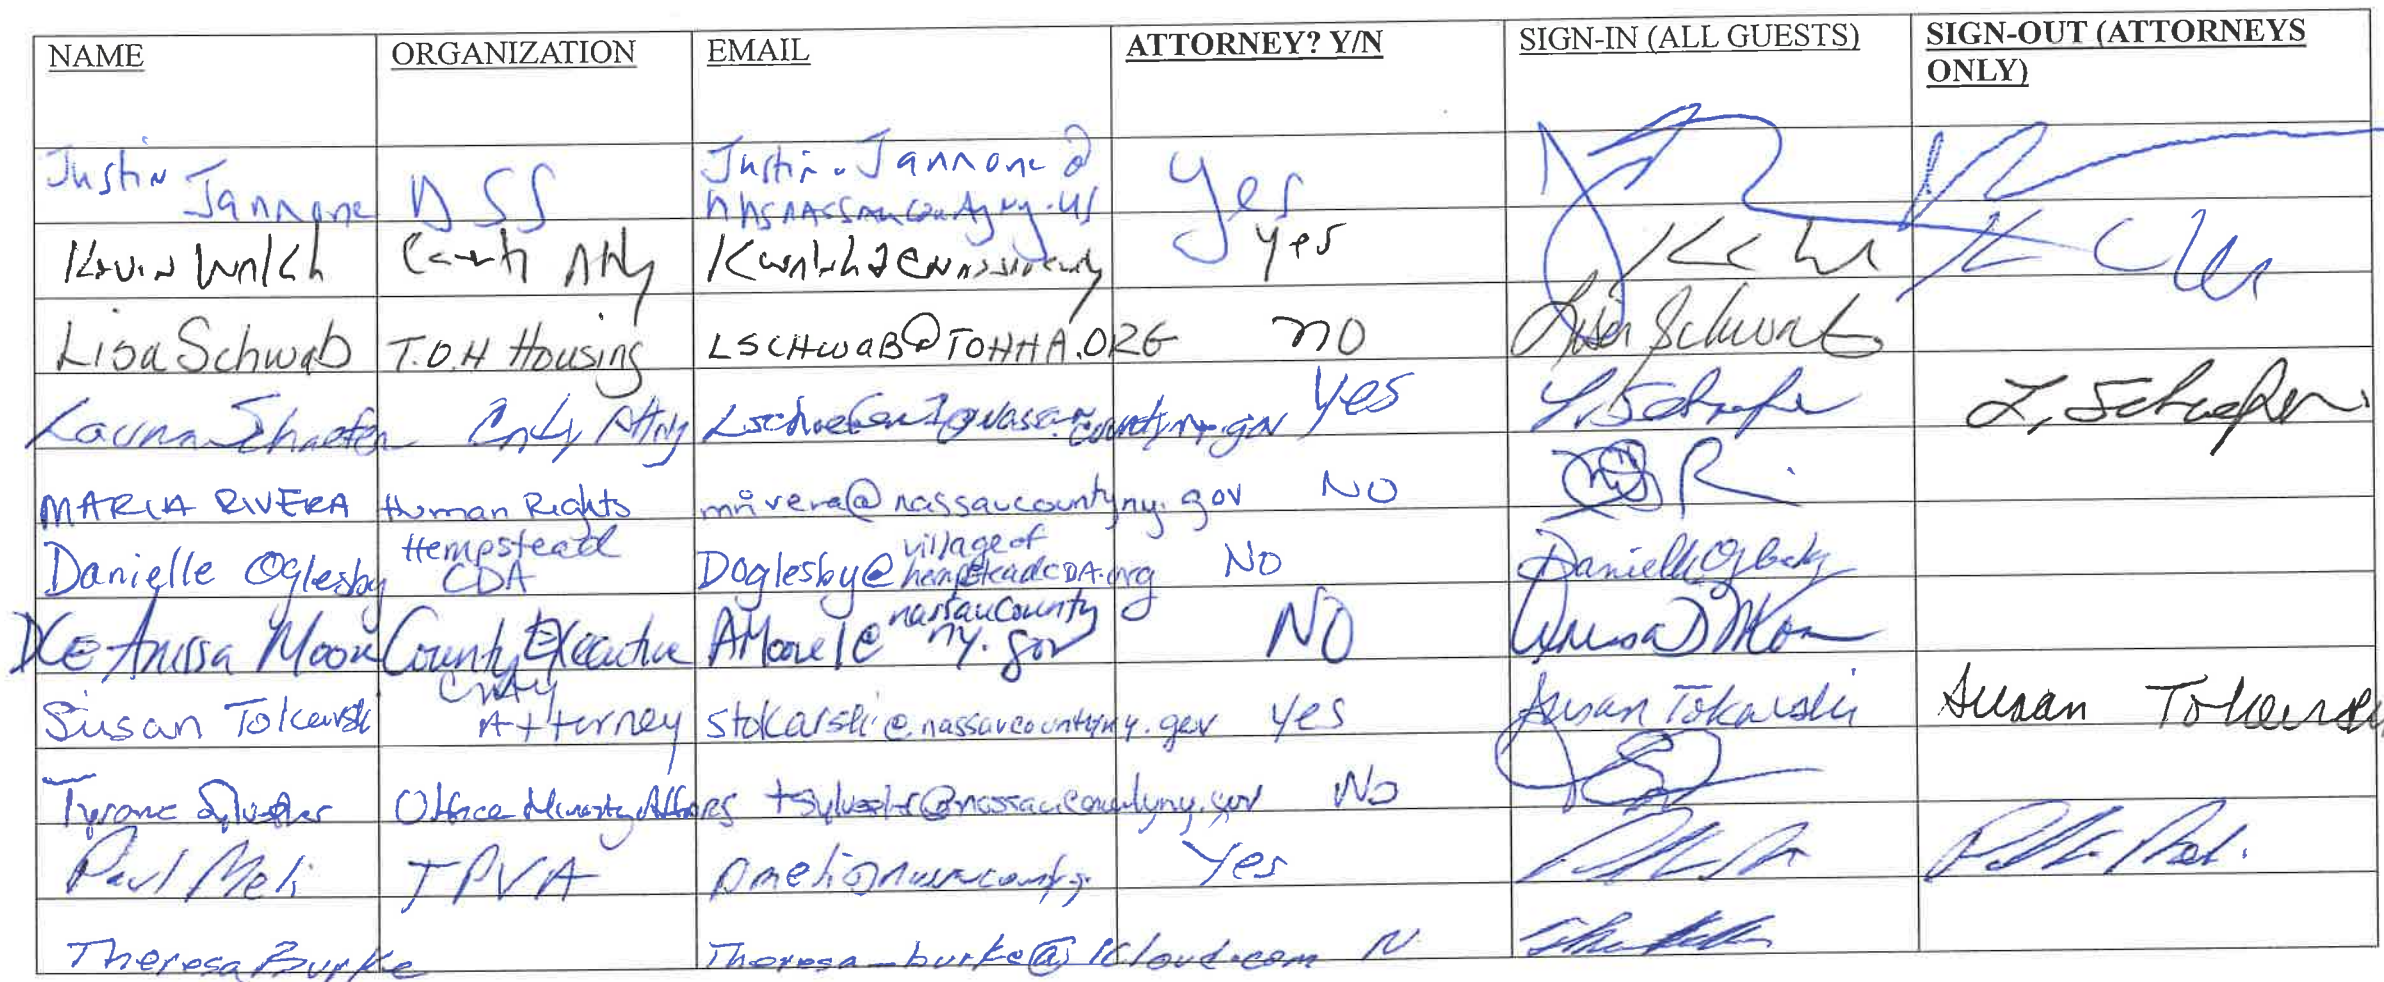 NAME ORGANIZATION EMAIL ATTORNEY? Y/N SIGN-IN (ALL GUESTS) SIGN-OUT (ATTORNEYS ONLY)
Justin Jannone DSS Justin.Jannone@hhsnassaucountyny.us Yes
Kevin Walsh County Atty yes
Lisa Schwab T.O.H Housing LSCHWAB@TOHHA.ORG no Lisa Schwab
Laurna Schaefer Cnty Attny yes L. Schaefer L. Schaefer
MARIA RIVERA Human Rights mrivera@nassaucountyny.gov NO
Danielle Oglesby Hempstead CDA Doglesby@villageofhempsteadCDA.org NO Danielle Oglesby
DCE Anissa Moore County Executive AMoore1@nassaucountyny.gov NO Anissa D Moore
Susan Tokarski Cnty Attorney stokarski@nassaucountyny.gov yes Susan Tokarski Susan Tokarski
Tyrone Sylvester Office Minority Affairs tsylvester@nassaucountyny.gov No
Paul Meli TPVA pmeli@nassaucounty. Yes
Theresa Burke Theresa_burke@icloud.com N